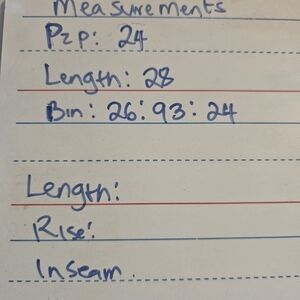 Measurements
P2P: 24
Length: 28
Bin: 26:93:24
Length:
Rise:
Inseam.